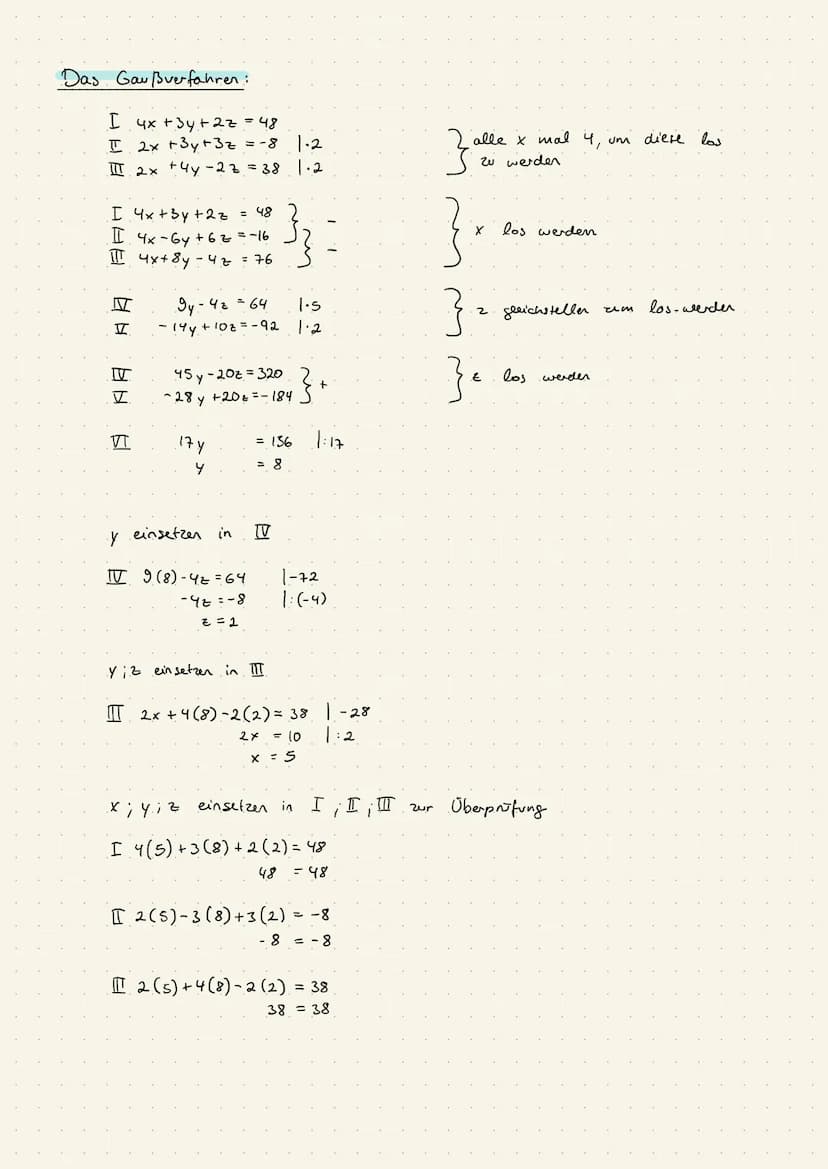 Das Gaußverfahren:
I 4x +3y+2z = 48
II 2x +3y+3z = -8 |·2
III 2x +4y -2z = 38 |·2
} alle x mal 4, um diese los
zu werden
I 4x+3y+2z = 48
II 4x-6y+6z = -16
III 4x+8y-4z = 76
} -
} -
} x los werden
IV 9y-4z = 64 |·5
V -14y+10z = -92 |·2
} z gleichstellen zum los-werden
IV 45y-20z = 320
V -28y+20z = -184
} +
} z los werden
VI 17y = 136 |:17
y = 8
y einsetzen in IV
IV 9(8)-4z = 64 |-72
-4z = -8 |:(-4)
z = 2
y;z einsetzen in III
III 2x+4(8)-2(2) = 38 |-28
2x = 10 |:2
x = 5
x;y;z einsetzen in I;II;III zur Überprüfung
I 4(5)+3(8)+2(2) = 48
48 = 48
II 2(5)-3(8)+3(2) = -8
-8 = -8
III 2(5)+4(8)-2(2) = 38
38 = 38